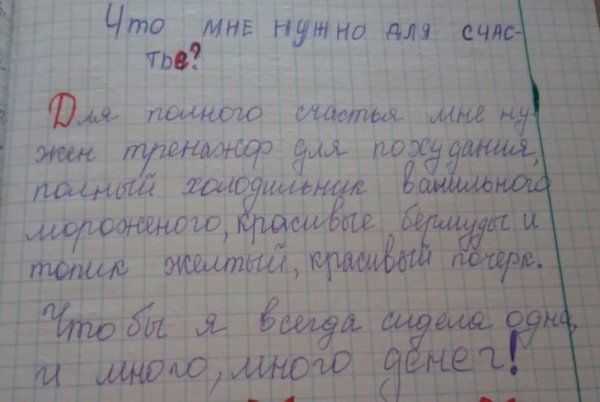 Что мне нужно для счас-
тье?
Для полного счастья мне ну-
жен тренажор для похудания,
полный холодильник ванильного
мороженого, красивые бермуды и
топик желтый, красивый почерк.
Что бы я всегда сидела одна,
и много, много денег!